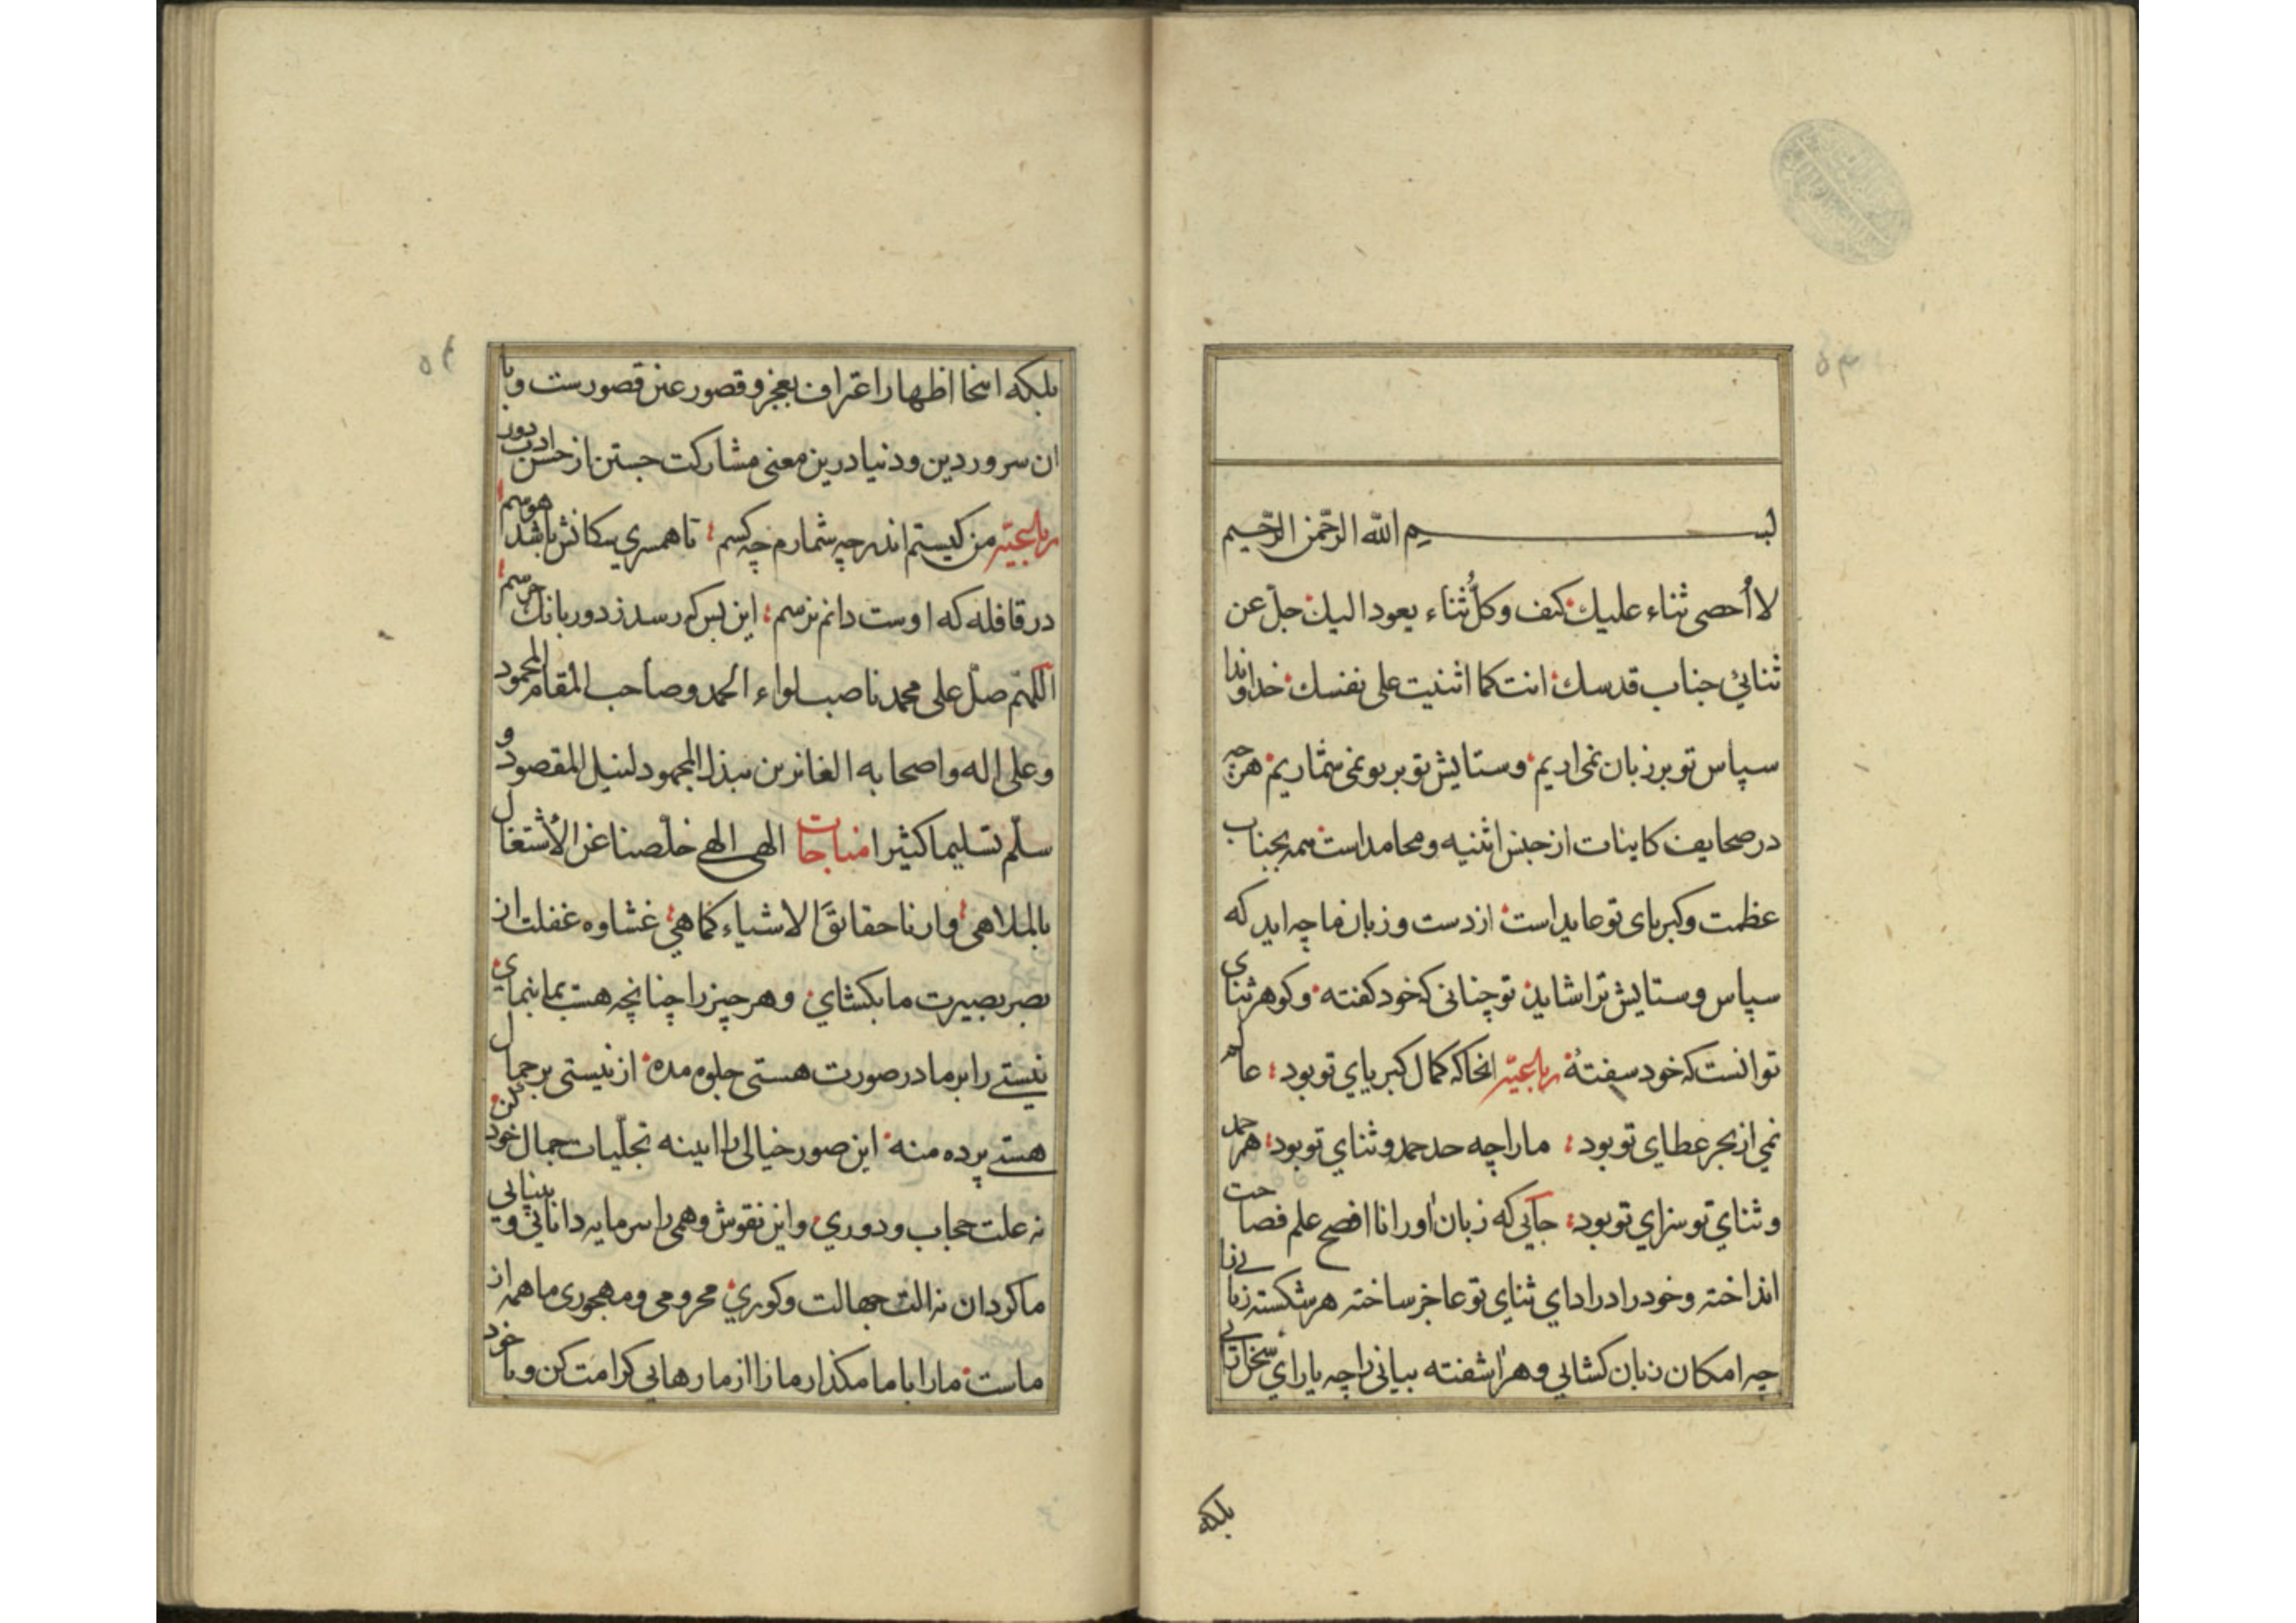 بسم الله الرحمن الرحيم
لا أُحصى ثناء عليك كيف وكلُّ ثناء يعود اليك جلّ عن
ثنائى جناب قدسك انت كما اثنيت على نفسك خداوندا
سپاس تو بر زبان نمی اریم وستایش تو بر تو نمی شماریم هرچه
در صحایف کاینات از جنس اثنیه ومحامد است همه بجناب
عظمت وکبریای تو عاید است از دست و زبان ما چه اید که
سپاس وستایش ترا شاید تو چنانی که خود کفته وکوهر ثنای
تو انست که خود سفتهٔ رباعیّه انجا که کمال کبریاي تو بود عالم
نمي از بحر عطای تو بود ما را چه حد حمد وثناي تو بود هم حمد
وثناي تو سزاي تو بود جایی که زبان اور انا افصح علم فصاحت
انداخته وخود را در اداي ثناي تو عاجز ساخته هر شکسته زبانی را
چه امکان زبان کشایی وهر اشفته بیانی را چه یاراي سخن رانی
بلکه
بلکه اینجا اظهار اعتراف بعجز و قصور عین قصورست وبا
ان سرور دین ودنیا درین معنی مشارکت جستن از حسن ادب دور
رباعیّه من کیستم اندر چه شمارم چه کسم تا همسري سکانش باشد هوسم
در قافله که اوست دانم نرسم این بس که رسد ز دور بانک جرسم
اللهم صلّ على محمد ناصب لواء الحمد وصاحب المقام المحمود
وعلى اله واصحابه الفائزين ببذل المجهود لنيل المقصود و
سلّم تسليما كثيرا مناجات الهى الهى خلّصنا عن الأشتغال
بالملاهى وارنا حقائقَ الاشياء كما هي غشاوه غفلت از
بصر بصیرت ما بکشاي وهر چیز را چنانچه هست بما بنماي
نیستی را بر ما در صورت هستی جلوه مده از نیستی بر جمال
هستی پرده منه این صور خیالی را ایینه تجلّیات جمال خود کن
نه علت حجاب ودوري واین نقوش وهمی را سرمایه دانائي وبینایی
ما کردان نه الت جهالت وکوري محرومی ومهجوری ما همه از
ماست ما را با ما مکذار ما را از ما رهایی کرامت کن وبا خود